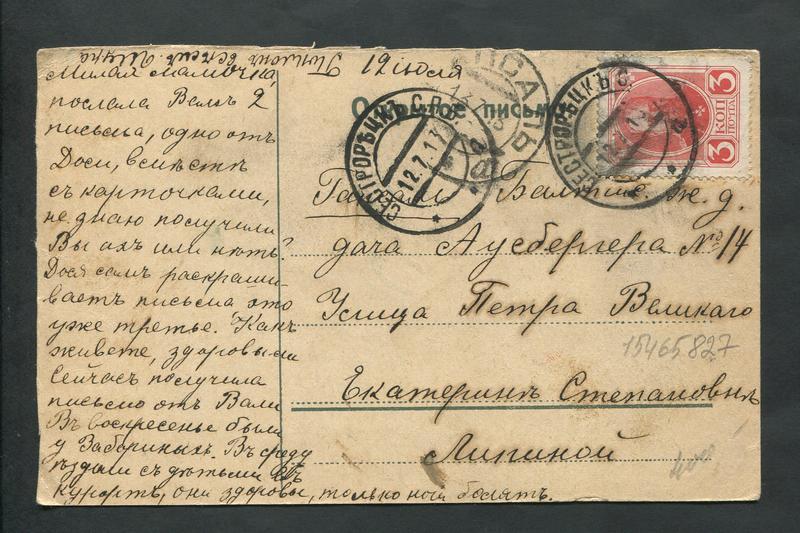 12 июля
Милая мамочка,
послала Вамъ 2
письма, одно отъ
Доси, вместѣ
съ карточками,
не знаю получили
Вы ихъ или нѣтъ?
Дося самъ раскраши-
ваетъ письма это
уже третье. Какъ
живете, здоровы ли
Сейчасъ получила
письмо отъ Вали
Въ воскресенье были
у Забориныхъ. Въ среду
ѣздили съ дѣтьми въ
Курортъ, они здоровы, только ноги болятъ.
Открытое письмо
СЕСТРОРѢЦКЪ С.П.
12.7.17
а
ГАПСАЛЬ
СЕСТРОРѢЦКЪ С.
3 КОП
ПОЧТА 3
Гапсаль Балтiс. ж. д.
дача Аусбергера № 14
Улица Петра Великаго
15465827
Екатеринѣ Степановнѣ
Липиной